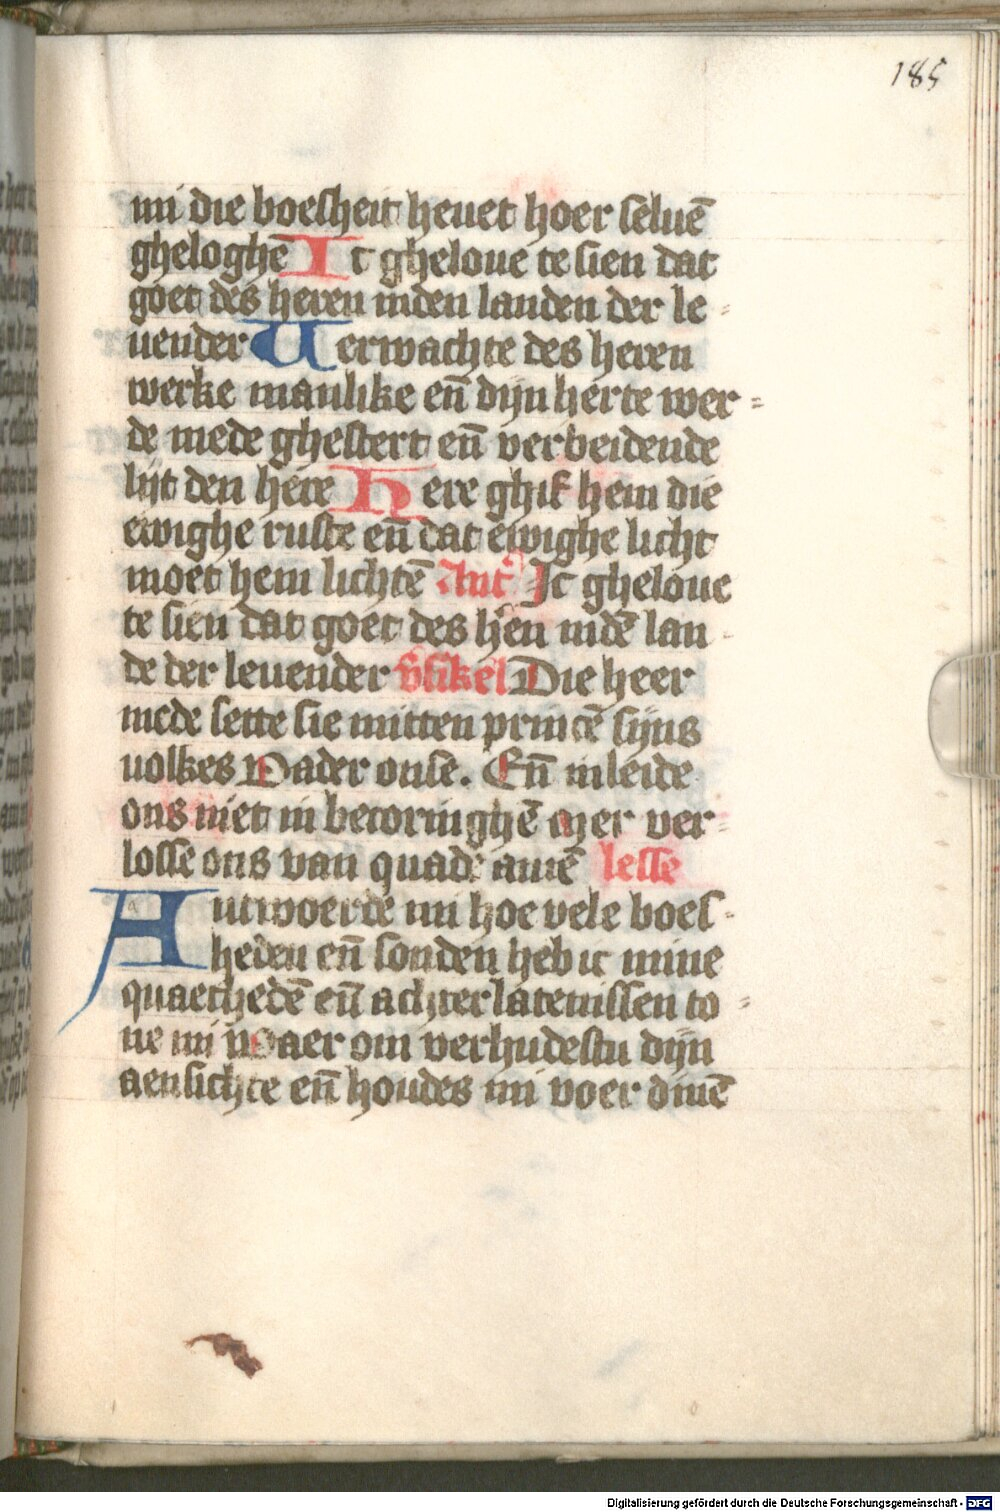 185
mi die boesheit heuet hoer seluē
gheloghē Ic gheloue te sien dat
goet des heren inden landen der le=
uender Uerwachte des heren
werke manlike eñ dijn herte wer=
de mede ghestert eñ verbeidende
sijt den here Here ghif hem die
ewighe ruste eñ dat ewighe licht
moet hem lichtē Ant' Ic gheloue
te sien dat goet des hēn indē lan=
de der leuender v̄sikel Die heer
mede sette sie mitten princē sijns
uolkes Vader onse. Eñ inleide
ons niet in becoringhē Mer ver=
losse ons van quade amē lesse
Antwoerde mi hoe vele boes=
heden eñ sonden heb ic mine
quaethedē eñ achterlatenissen to=
ne mi Waer om verhudestu dijn
aensichte eñ houdes mi voer dinē
Digitalisierung gefördert durch die Deutsche Forschungsgemeinschaft - DFG